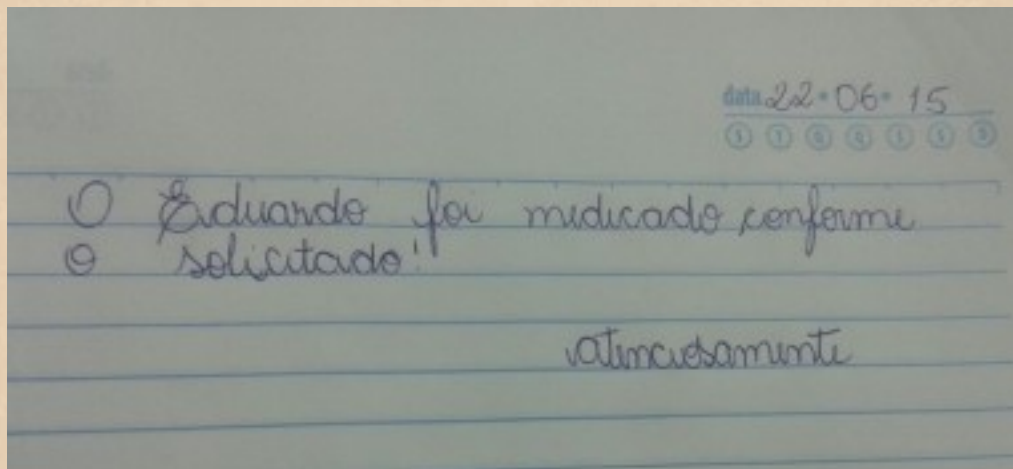 data 22 · 06 · 15
S T Q Q S S D
O Eduardo foi medicado, conforme
o solicitado!
atenciosamente